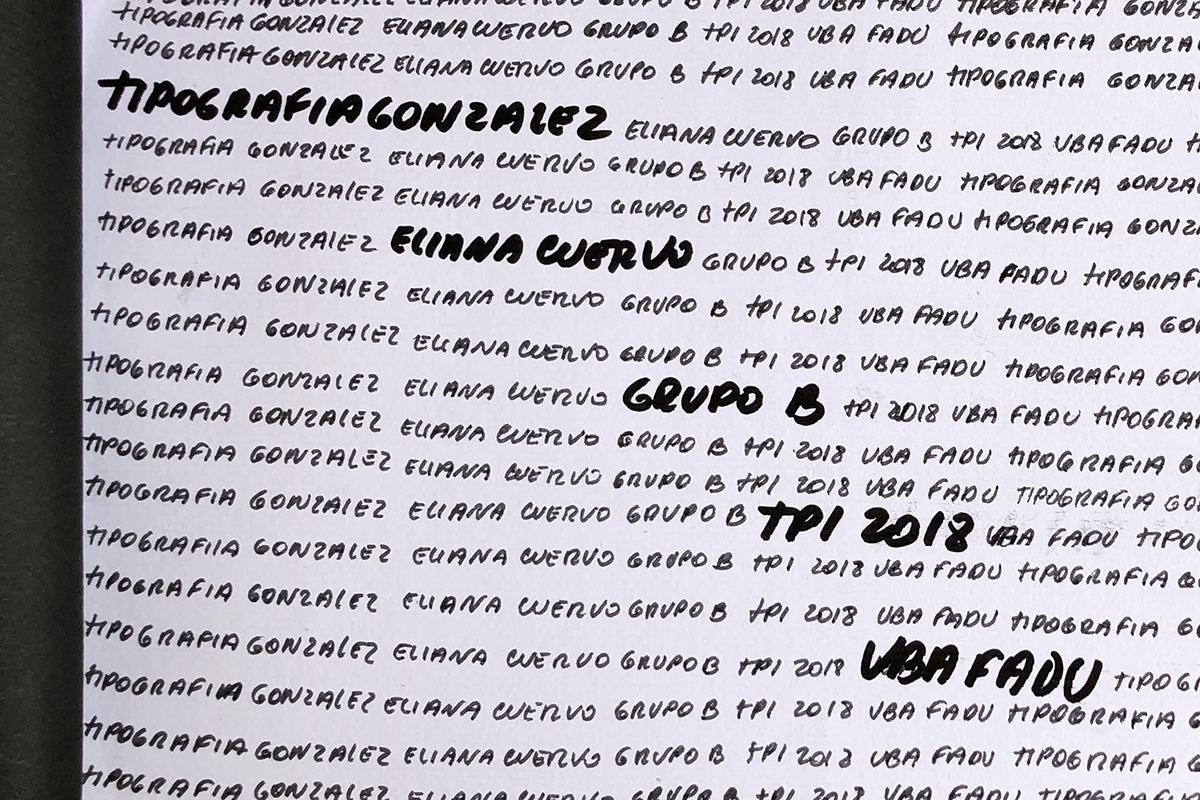 TIPOGRAFIA GONZALEZ ELIANA CUERVO GRUPO B TPI 2018 UBA FADU TIPOGRAFIA GONZA
TIPOGRAFIA GONZALEZ ELIANA CUERVO GRUPO B TPI 2018 UBA FADU TIPOGRAFIA GONZA
TIPOGRAFIA GONZALEZ ELIANA CUERVO GRUPO B TPI 2018 UBA FADU TIPOGRAFIA GONZA
TIPOGRAFIA GONZALEZ ELIANA CUERVO GRUPO B TPI 2018 UBA FADU
TIPOGRAFIA GONZALEZ ELIANA CUERVO GRUPO B TPI 2018 UBA FADU TIPOGRAFIA GONZA
TIPOGRAFIA GONZALEZ ELIANA CUERVO GRUPO B TPI 2018 UBA FADU TIPOGRAFIA GONZ
TIPOGRAFIA GONZALEZ ELIANA CUERVO GRUPO B TPI 2018 UBA FADU TIPOGRAF
TIPOGRAFIA GONZALEZ ELIANA CUERVO GRUPO B TPI 2018 UBA FADU TIPOGRAFIA GO
TIPOGRAFIA GONZALEZ ELIANA CUERVO GRUPO B TPI 2018 UBA FADU TIPOGRAFIA GON
TIPOGRAFIA GONZALEZ ELIANA CUERVO GRUPO B TPI 2018 UBA FADU TIPOGRA
TIPOGRAFIA GONZALEZ ELIANA CUERVO GRUPO B TPI 2018 UBA FADU TIPOGRAFIA G
TIPOGRAFIA GONZALEZ ELIANA CUERVO GRUPO B TPI 2018 UBA FADU TIPOGRAFIA GO
TIPOGRAFIA GONZALEZ ELIANA CUERVO GRUPO B TPI 2018 UBA FADU TIPO
TIPOGRAFIIA GONZALEZ ELIANA CUERVO GRUPO B TPI 2018 UBA FADU TIPOGRAFIA G
TIPOGRAFIA GONZALEZ ELIANA CUERVO GRUPO B TPI 2018 UBA FADU TIPOGRAFIA G
TIPOGRAFIA GONZALEZ ELIANA CUERVO GRUPO B TPI 2018 UBA FADU TIPOGR
TIPOGRAFIA GONZALEZ ELIANA CUERVO GRUPO B TPI 2018 UBA FADU TIPOGRAFIA G
TIPOGRAFIA GONZALEZ ELIANA CUERVO GRUPO B TPI 2018 UBA FADU TIPOGRAFIA G
TIPOGRAFIA GONZALEZ ELIANA CUERVO GRUPO B TPI 2018 UBA FADU TIPOGRAFIA